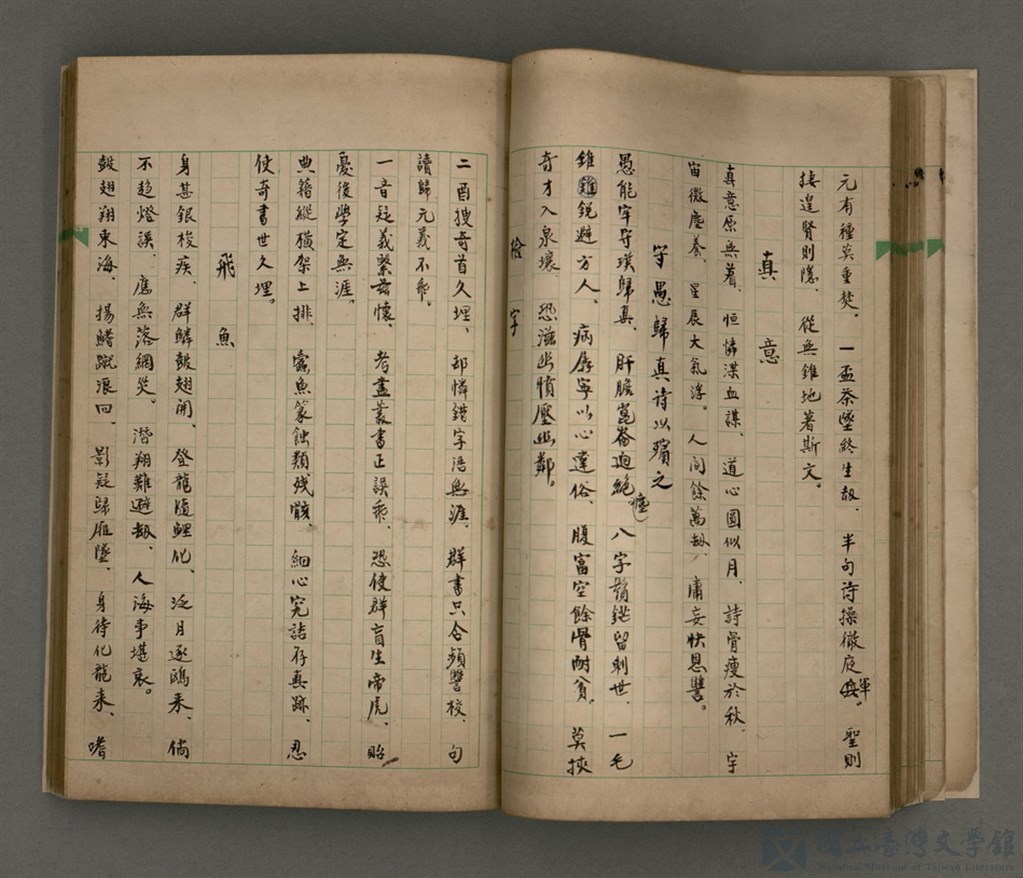 元有種莫重焚、一盃茶墜終生劫、半句诗操徹底渾。聖則
接遑賢則隱、從無錐地著斯文。
真意
真意原無著、恒憐渫血謀、道心圓似月、詩骨瘦於秋、宇
宙微塵養、星辰大氣浮。人间餘萬劫、庸妄快恩讐。
字愚歸真诗以殯之
愚能字守璞歸真、肝膽崑崙迥絶、八字鬚鋩留刺世、一毛
錐銳避方人、病孱寧以心違俗、腹富空餘骨耐貧。莫挾
奇才入泉壤、恐滋出憤壓幽鄰。
檢字
二酉搜奇首久埋、却憐錯字浩無涯、群書只合頻讐校、句
讀歸元義不乖。
一音疑義繫茲懷、者盡叢書正誤乖、恐使群盲生帝虎、貽
憂後學定無涯。
典籍縱橫架上排、蠹魚篆蝕類殘骸、細心究詰存真跡、忍
使奇書世久埋。
飛魚
身甚銀梭疾、群鱗鼓翅開、登龍隨鯉化、泛月逐鷗来、倘
不趋燈誤、應無落網哭。潛翔難避劫、人海事堪哀。
鼓翅翔東海、揚鰭蹴浪回、影疑歸雁墜、身待化龍来、嗜
國立臺灣文學館
National Museum of Taiwan Literature